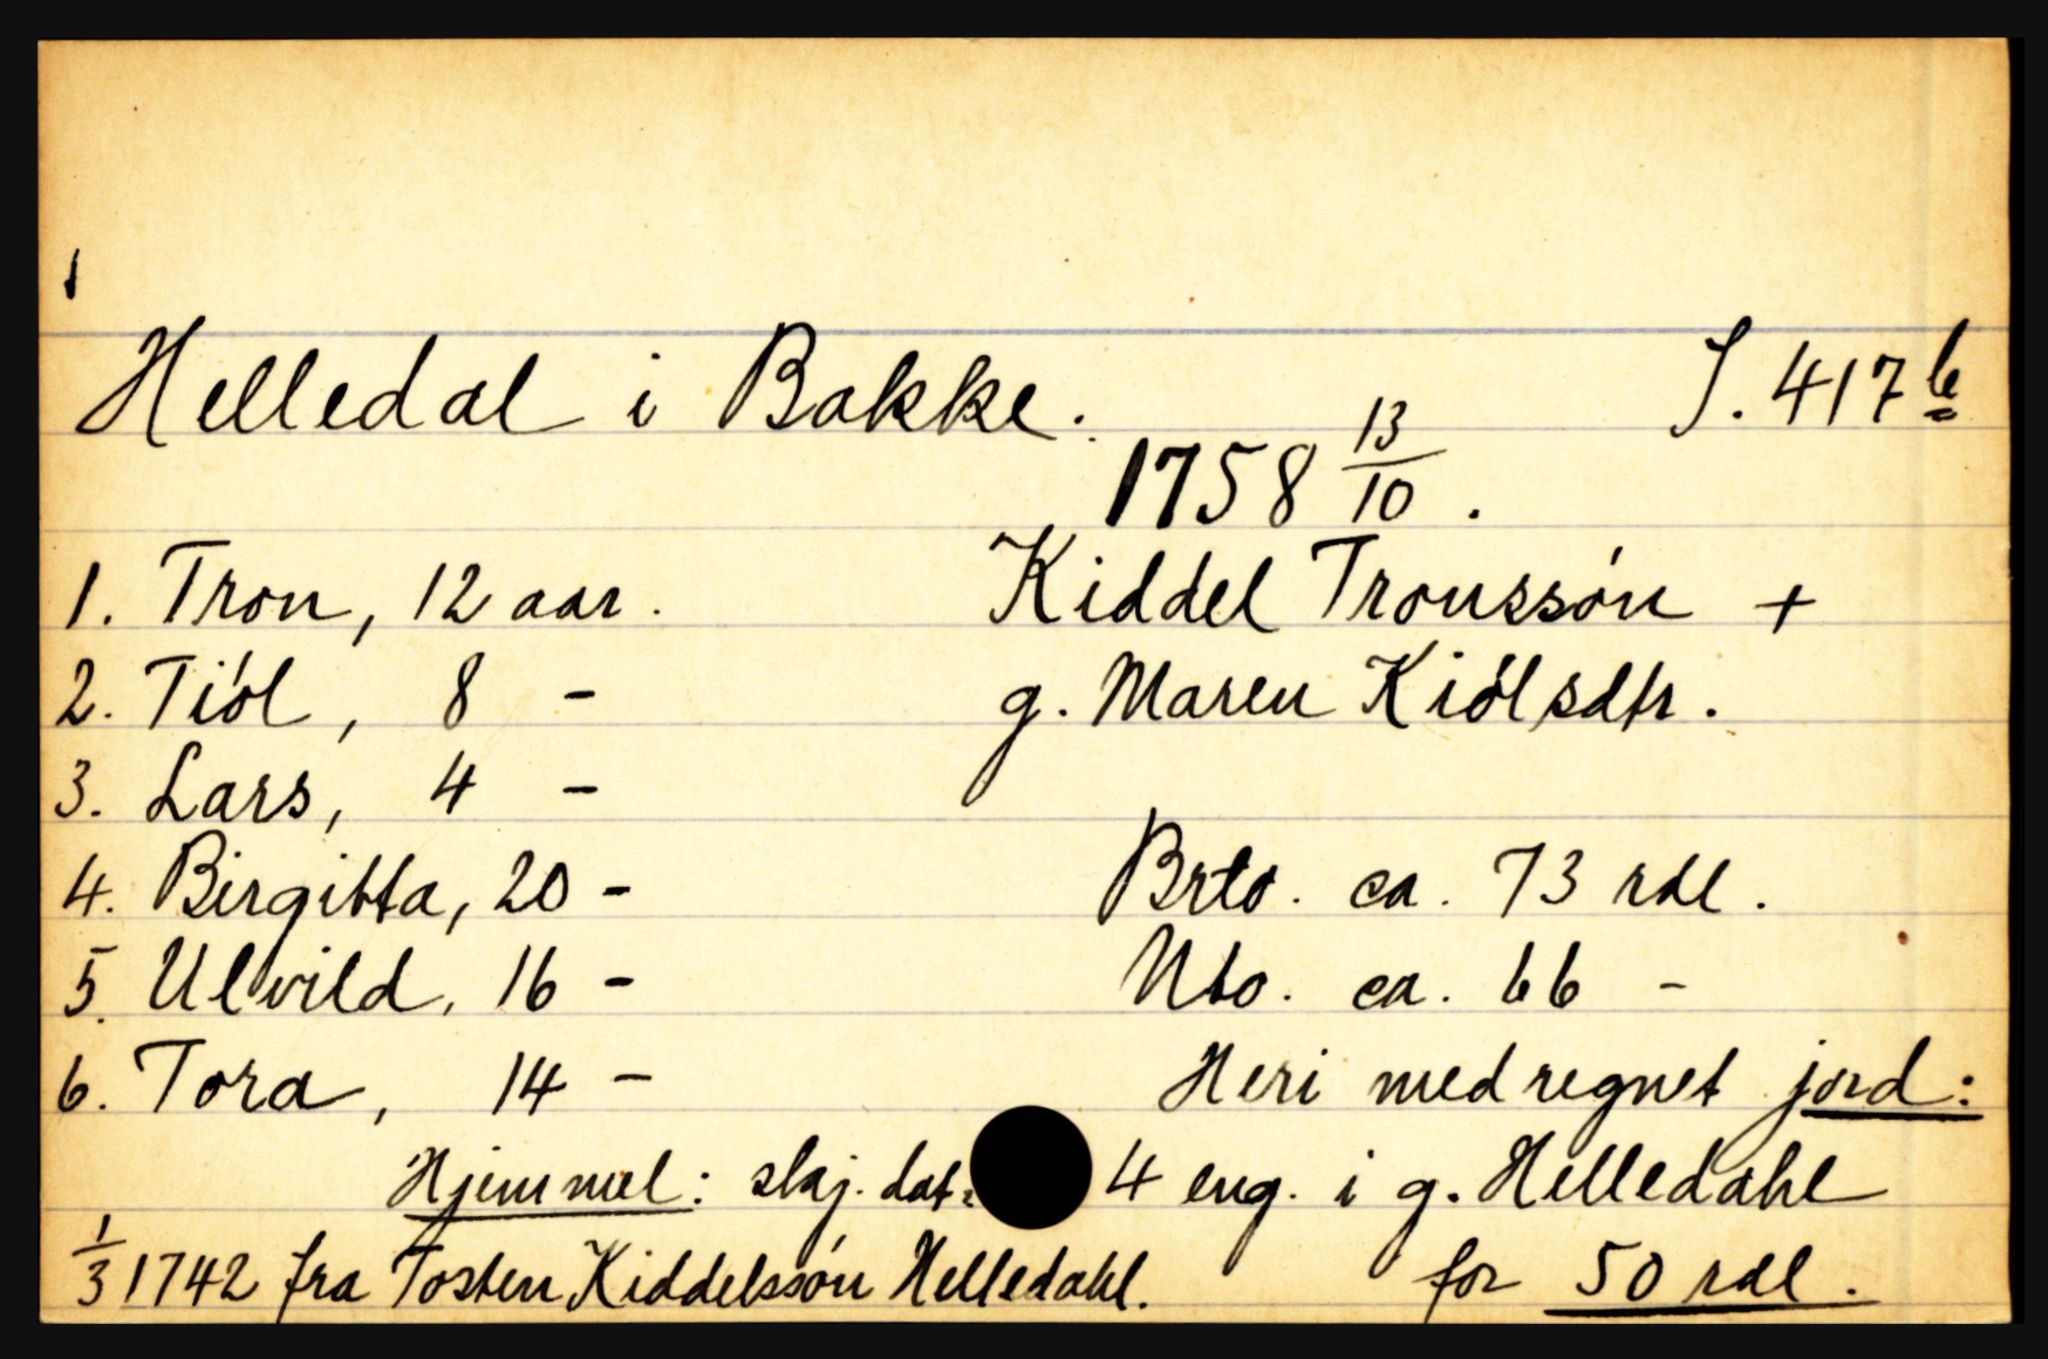 Helledal i Bakke. S. 417 b
1758 13/10.
1. Tron, 12 aar. Kiddel Tronssón +
2. Tiól, 8 - g. Maren Kiólsdtr.
3. Lars, 4 -
4. Birgitta, 20 - Brto. ca. 73 rdl.
5. Ulvild, 16 - Nto. ca. 66 -
6. Tora, 14 - Heri medregnet jord:
Hjemmel: skj. dat: 4 eng. i g. Helledahl
1/3 1742 fra Tosten Kiddelssón Helledahl. for 50 rdl.